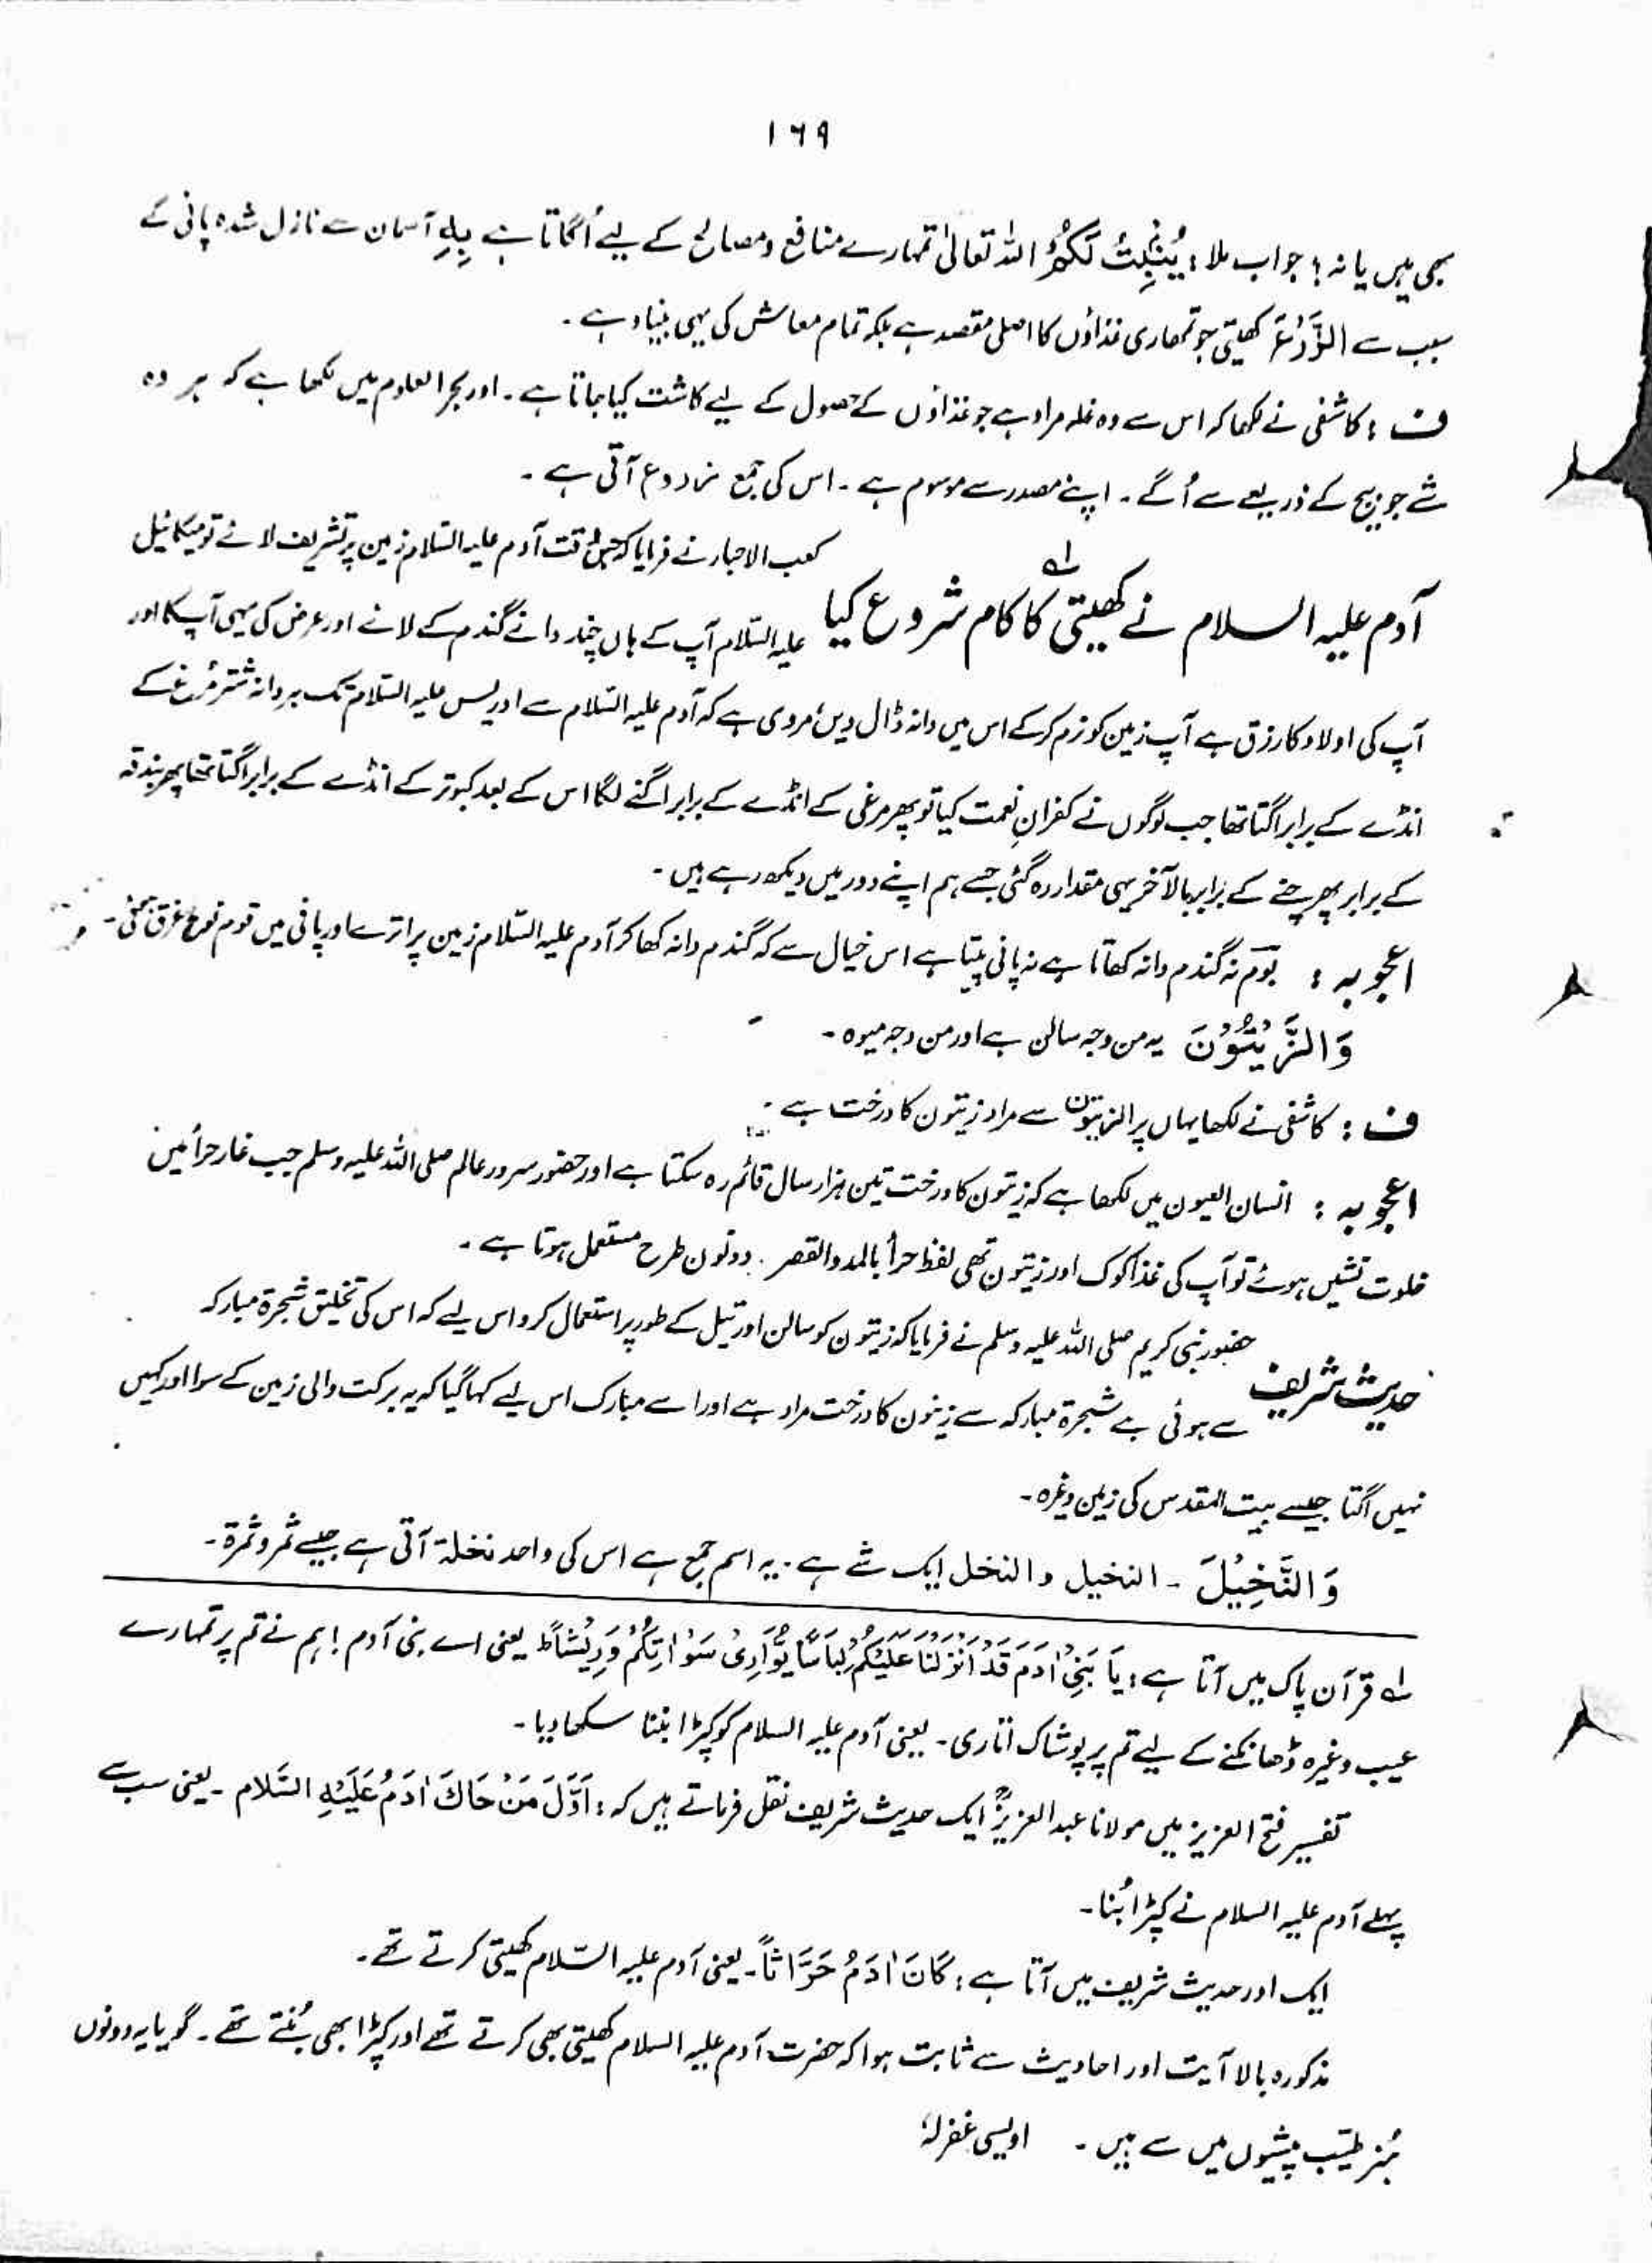 ۱۶۹
بھی ہیں یا نہ؛ جواب ملا: یُنْۢبِتُ لَکُمْ اللہ تعالیٰ تمہارے منافع و مصالح کے لیے اُگاتا ہے بِہٖ آسمان سے نازل شدہ پانی کے
سبب سے الزَّرْعَ کھیتی جو تمھاری غذاؤں کا اصلی مقصد ہے بلکہ تمام معاش کی یہی بنیاد ہے۔
ف: کاشفی نے لکھا کہ اس سے وہ غلہ مراد ہے جو غذاؤں کے حصول کے لیے کاشت کیا جاتا ہے۔ اور بحر العلوم میں لکھا ہے کہ ہر وہ
شے جو بیج کے ذریعے سے اُگے۔ اپنے مصدر سے موسوم ہے۔ اس کی جمع زروع آتی ہے۔
آدم علیہ السلام نے کھیتی کا کام شروع کیا ؎۱ کعب الاحبار نے فرمایا کہ جس وقت آدم علیہ السّلام زمین پر تشریف لائے تو میکائیل
علیہ السّلام آپ کے ہاں چند دانے گندم کے لائے اور عرض کی یہی آپ کا اور
آپ کی اولاد کا رزق ہے آپ زمین کو نرم کر کے اس میں دانہ ڈال دیں؛ مروی ہے کہ آدم علیہ السّلام سے ادریس علیہ السّلام تک ہر دانہ شتر مُرغ کے
انڈے کے برابر اگتا تھا جب لوگوں نے کفرانِ نعمت کیا تو پھر مرغی کے انڈے کے برابر اگنے لگا اس کے بعد کبوتر کے انڈے کے برابر اگتا تھا پھر بندقہ
کے برابر پھر چنے کے برابر بالآخر یہی مقدار رہ گئی جسے ہم اپنے دور میں دیکھ رہے ہیں۔
اعجوبہ: بُوم نہ گندم دانہ کھاتا ہے نہ پانی پیتا ہے اس خیال سے کہ گندم دانہ کھا کر آدم علیہ السّلام زمین پر اترے اور پانی میں قوم نوح غرق ہوئی۔
وَالزَّیْتُوْنَ یہ من وجہ سالن ہے اور من وجہ میوہ۔
ف: کاشفی نے لکھا یہاں پر الزیتون سے مراد زیتون کا درخت ہے۔
اعجوبہ: انسان العیون میں لکھا ہے کہ زیتون کا درخت تین ہزار سال قائم رہ سکتا ہے اور حضور سرور عالم صلی اللہ علیہ وسلم جب غار حرأ میں
خلوت نشیں ہوئے تو آپ کی غذا کوک اور زیتون تھی لفظ حرأ بالمد والقصر۔ دونوں طرح مستعمل ہوتا ہے۔
حدیث شریف حضور نبی کریم صلی اللہ علیہ وسلم نے فرمایا کہ زیتون کو سالن اور تیل کے طور پر استعمال کرو اس لیے کہ اس کی تخلیق شجرۃ مبارکہ
سے ہوئی ہے شجرۃ مبارکہ سے زیتون کا درخت مراد ہے اور اسے مبارک اس لیے کہا گیا کہ یہ برکت والی زمین کے سوا اور کہیں
نہیں اگتا جیسے بیت المقدس کی زمین وغیرہ۔
وَالنَّخِیْلَ۔ النخیل و النخل ایک شے ہے۔ یہ اسم جمع ہے اس کی واحد نخلۃ آتی ہے جیسے ثمر و ثمرۃ۔
؎۱ قرآن پاک میں آتا ہے: یَا بَنِیْ اٰدَمَ قَدْ اَنْزَلْنَا عَلَیْکُمْ لِبَاسًا یُّوَارِیْ سَوْاٰتِکُمْ وَرِیْشًاط یعنی اے بنی آدم! ہم نے تم پر تمہارے
عیب وغیرہ ڈھانکنے کے لیے تم پر پوشاک اتاری۔ یعنی آدم علیہ السلام کو کپڑا بننا سکھا دیا۔
تفسیر فتح العزیز میں مولانا عبد العزیزؒ ایک حدیث شریف نقل فرماتے ہیں کہ: اَوَّلَ مَنْ حَاکَ اٰدَمُ عَلَیْہِ السَّلَام۔ یعنی سب سے
پہلے آدم علیہ السلام نے کپڑا بُنا۔
ایک اور حدیث شریف میں آتا ہے: کَانَ اٰدَمُ حَرَّاثاً۔ یعنی آدم علیہ السّلام کھیتی کرتے تھے۔
مذکورہ بالا آیت اور احادیث سے ثابت ہوا کہ حضرت آدم علیہ السلام کھیتی بھی کرتے تھے اور کپڑا بھی بُنتے تھے۔ گویا یہ دونوں
ہُنر طیّب پیشوں میں سے ہیں۔ اویسی غفرلہٗ